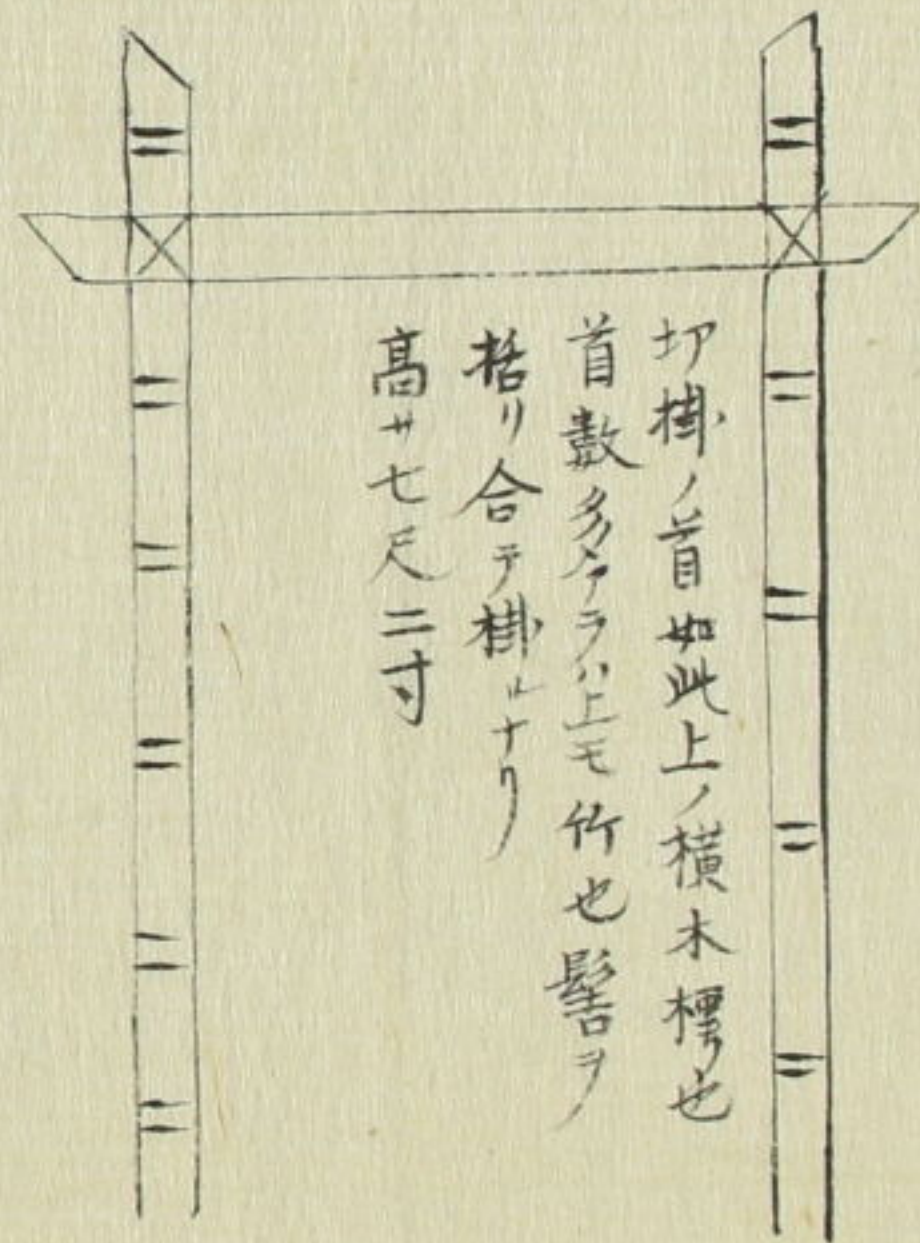 切掛ノ首如此上ノ横木樗也
首數多アラハ上モ竹也髻ヲ
括リ合テ掛ルナリ
高サ七尺二寸